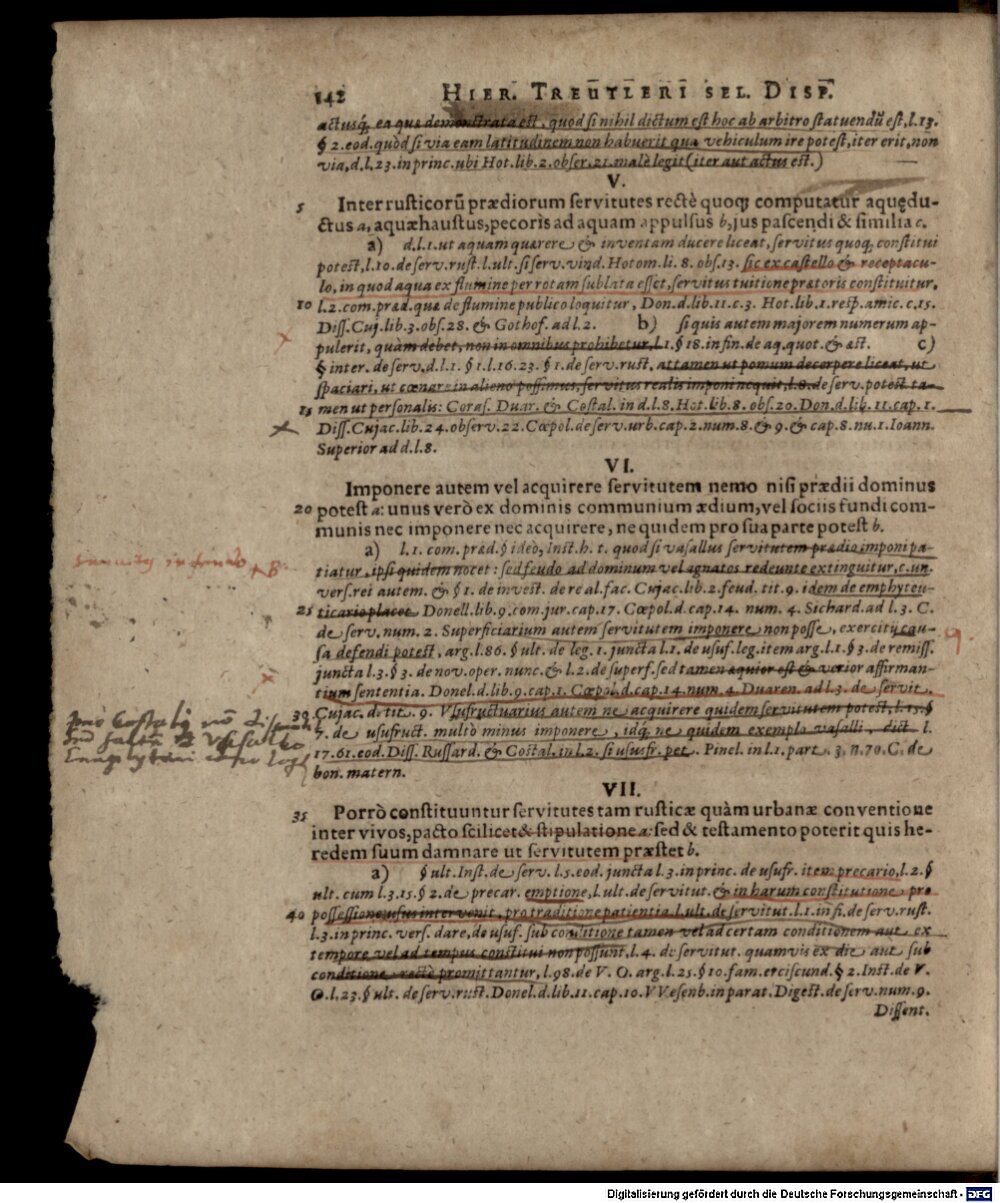 142 HIER. TREUTLERI SEL. DISP.
actusq́; ea quæ demonstrata est, quod si nihil dictum est hoc ab arbitro statuendũ est, l. 13.
§ 2. eod. quòd si via eam latitudinem non habuerit qua vehiculum ire potest, iter erit, non
via, d. l. 23. in princ. ubi Hot. lib. 2. obser. 21. malè legit (iter aut actus est.)
V.
5 Inter rusticorũ prædiorum servitutes rectè quoq; computatur aquędu-
ctus a, aquæhaustus, pecoris ad aquam appulsus b, jus pascendi & similia c.
a) d. l. 1. ut aquam quærere & inventam ducere liceat, servitus quoq; constitui
potest, l. 10. de serv. rust. l. ult. si serv. vind. Hotom. li. 8. obs. 13. sic ex castello & receptacu-
lo, in quod aqua ex flumine per rotam sublata esset, servitus tuitione prætoris constituitur,
10 l. 2. com. præd. quæ de flumine publico loquitur, Don. d. lib. 11. c. 3. Hot. lib. 1. resp. amic. c. 15.
Diss. Cuj. lib. 3. obs. 28. & Gothof. ad l. 2. b) si quis autem majorem numerum ap-
pulerit, quàm debet, non in omnibus prohibetur, l. 1. § 18. in fin. de aq. quot. & æst. c)
§ inter. de serv. d. l. 1. § 1. l. 16. 23. § 1. de serv. rust. attamen ut pomum decerpere liceat, ut
spaciari, ut cœnare in alieno possimus, servitus realis imponi nequit, l. 8. de serv. potest ta-
15 men ut personalis: Coras. Duar. & Costal. in d. l. 8. Hot. lib. 8. obs. 20. Don. d. lib. 11. cap. 1.
Diss. Cujac. lib. 24. observ. 22. Cœpol. de serv. urb. cap. 2. num. 8. & 9. & cap. 8. nu. 1. Ioann.
Superior ad d. l. 8.
VI.
Imponere autem vel acquirere servitutem nemo nisi prædii dominus
20 potest a: unus verò ex dominis communium ædium, vel sociis fundi com-
munis nec imponere nec acquirere, ne quidem pro sua parte potest b.
a) l. 1. com. præd. § ideò, Inst. h. t. quod si vasallus servitutem prædio imponi pa-
tiatur, ipsi quidem nocet: sed feudo ad dominum vel agnatos redeunte extinguitur, c. un.
vers. rei autem. & § 1. de invest. de re al. fac. Cujac. lib. 2. feud. tit. 9. idem de emphyteu-
25 ticario placet Donell. lib. 9. com. jur. cap. 17. Cœpol. d. cap. 14. num. 4. Sichard. ad l. 3. C.
de serv. num. 2. Superficiarium autem servitutem imponere non posse, exercitij cau-
sa defendi potest, arg. l. 86. § ult. de leg. 1. juncta l. 1. de usuf. leg. item arg. l. 1. § 3. de remiss.
juncta l. 3. § 3. de nov. oper. nunc. & l. 2. de superf. sed tamen æquior est & verior affirman-
tium sententia. Donel. d. lib. 9. cap. 1. Cœpol. d. cap. 14. num. 4. Duaren. ad l. 3. de servit.
30 Cujac. d. tit. 9. Vsufructuarius autem ne acquirere quidem servitutem potest, l. 15. §
7. de usufruct. multò minus imponere, idq́; ne quidem exemplo vasalli, dict. l.
17. 61. eod. Diss. Russard. & Costal. in l. 2. si ususfr. pet. Pinel. in l. 1. part. 3. n. 70. C. de
bon. matern.
VII.
35 Porrò constituuntur servitutes tam rusticæ quàm urbanæ conventione
inter vivos, pacto scilicet & stipulatione a: sed & testamento poterit quis he-
redem suum damnare ut servitutem præstet b.
a) § ult. Inst. de serv. l. 5. eod. juncta l. 3. in princ. de usufr. item precario, l. 2. §
ult. cum l. 3. 15. § 2. de precar. emptione, l. ult. de servitut. & in harum constitutione pro
40 possessione usus intervenit, pro traditione patientia l. ult. de servitut. l. 1. in fi. de serv. rust.
l. 3. in princ. vers. dare, de usuf. sub conditione tamen vel ad certam conditionem aut ex
tempore vel ad tempus constitui non possunt, l. 4. de servitut. quamvis ex die aut sub
conditione rectè promittantur, l. 98. de V. O. arg. l. 25. § 10. fam. erciscund. § 2. Inst. de V.
O. l. 23. § ult. de serv. rust. Donel. d. lib. 11. cap. 10. VVesenb. in parat. Digest. de serv. num. 9.
Dissent.
Digitalisierung gefördert durch die Deutsche Forschungsgemeinschaft - DFG